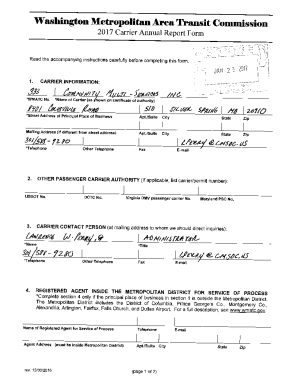 Washington Metropolitan Area Transit Commission
2017 Carrier Annual Report Form
Read the accompanying instructions carefully before completing this form.
JAN 23 2017
1. CARRIER INFORMATION:
333 COMMUNITY MULTI-SERVICES INC
*WMATC No. *Name of Carrier (as shown on certificate of authority)
8701 GEORGIA ROAD 510 SILVER SPRING MD 20910
*Street Address of Principal Place of Business Apt./Suite City State Zip
Mailing Address (if different from street address) Apt./Suite City State Zip
301/588-9280 LPERRY@CMSDC.US
*Telephone Other Telephone Fax E-mail
2. OTHER PASSENGER CARRIER AUTHORITY (if applicable, list carrier/permit number):
USDOT No. DCTC No. Virginia DMV passenger carrier No. Maryland PSC No.
3. CARRIER CONTACT PERSON (at mailing address to whom we should direct inquiries):
LAWRENCE W. PERRY, SR ADMINISTRATOR
*Name *Title
301/588-9280 LPERRY@CMSDC.US
*Telephone Other Telephone Fax E-mail
4. REGISTERED AGENT INSIDE THE METROPOLITAN DISTRICT FOR SERVICE OF PROCESS
*Complete section 4 only if the principal place of business in section 1 is outside the Metropolitan District.
The Metropolitan District includes the District of Columbia, Prince George's Co., Montgomery Co.,
Alexandria, Arlington, Fairfax, Falls Church, and Dulles Airport. For a full description, visit www.wmatc.gov.
Name of Registered Agent for Service of Process Telephone E-mail
Agent Address (must be inside Metropolitan District) Apt./Suite City State Zip
(page 1 of 2)